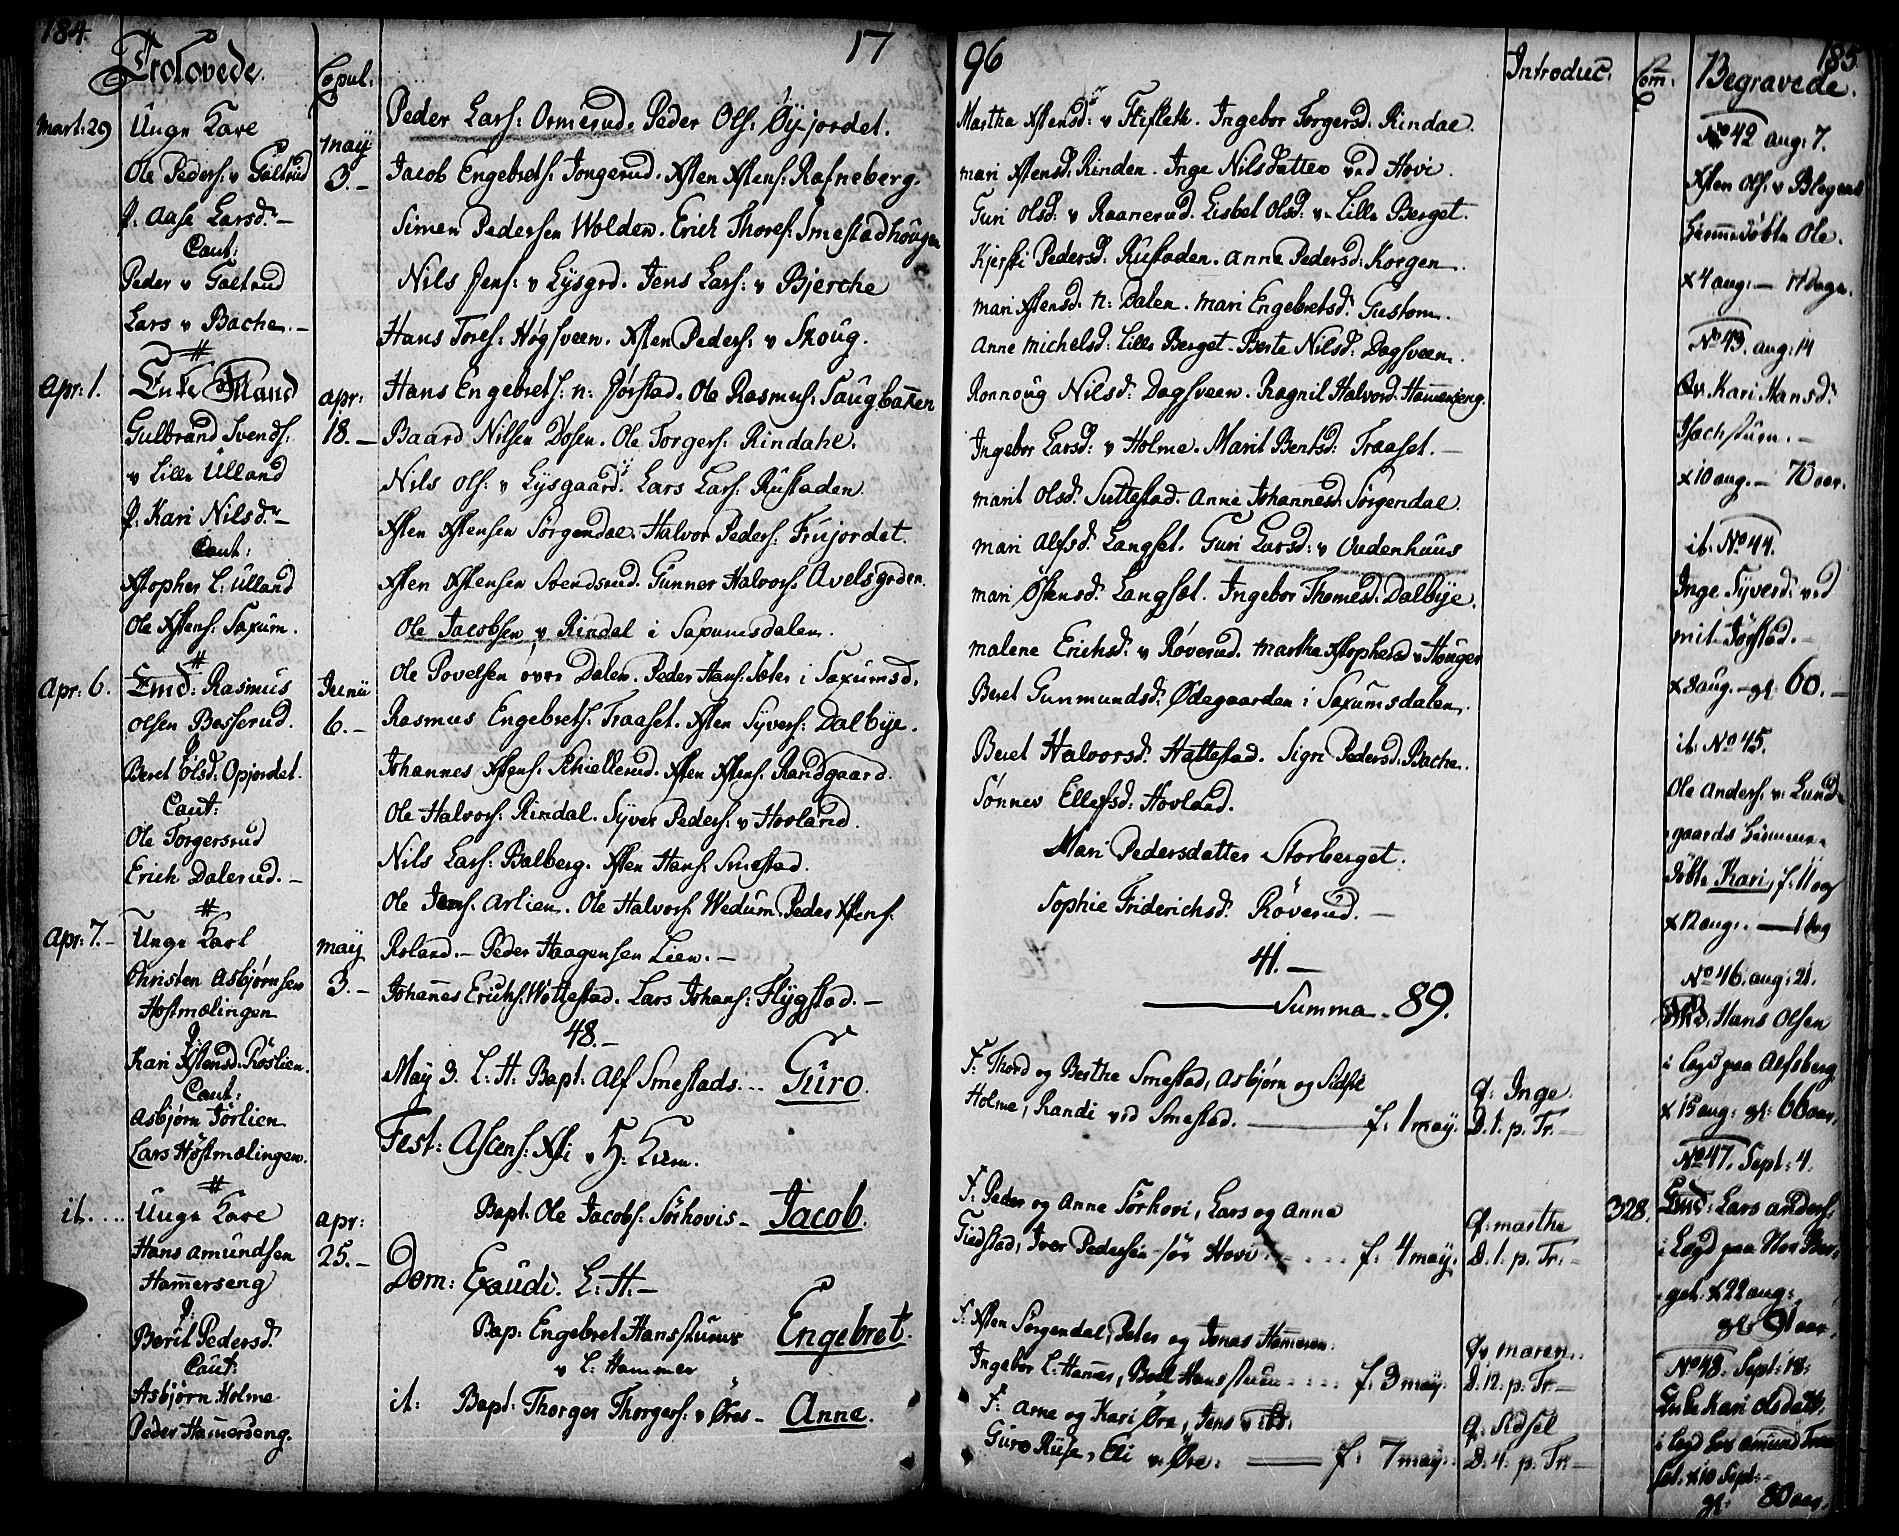 184.
17
Trolovede.
Copul.
Mart: 29
Unge Karl
Ole Peders: v Galtrud
J. Aase Larsd: –
Caut:
Peder v Galtrud
Lars v Bache. –
may
3. –
Apr: 1.
Enke Mand
Gulbrand Svends:
v Lille Ulland
P. Kari Nilsd: –
Caut:
Xstopher L: Ulland
Ole Xstens: Saxum.
apr:
18. –
Apr: 6.
Emd: Rasmus
Olsen Basserud.
Beret Olsd: Opjordet.
Caut:
Ole Torgersrud
Erich Dalerud. –
Junii
6. –
Apr: 7. –
Unge Karl
Christen Asbjørnsen
Høstmælingen
Kari Xstensd: Røslien.
Caut:
Asbjørn Jørlien
Lars Høstmælingen.
may
3. –
it. ...
Unge Karl
Hans Amundsen
Hamerseng
Berit Pedersd:
Caut:
Asbjørn Holme
Peder Hamerseng.
apr:
25. –
Peder Lars: Ormerud. Peder Ols: Øyjordet.
Jacob Engebrets: Jongerud. Xsten Xstens: Rafneberg.
Simen Pedersen Wolden. Erich Thores: Smestadhougen
Nils Jens: v Lysgrd. Jens Lars: v Bjerche
Hans Tores: Høgsveen. Xsten Peders: v Skoug.
Hans Engebrets: n: Jørstad. Ole Rasmus: Saugbakken
Baard Nilsen Døsen. Ole Torgers: Rindahl.
Nils Ols: v Lysgaard. Lars Lars: Rustaden.
Xsten Xstensen Sørgendal. Halvor Peders: Frujordet.
Xsten Xstensen Svendsrud. Gunner Halvors: Avelsgrden.
Ole Jacobsen v Rindal i Saxumsdalen.
Ole Povelsen øvre Dalen. Peder Hans: Sæter i Saxumsd.
Rasmus Engebrets: Traaset. Xsten Syvers: Dalbye.
Johannes Xstens: Schiellerud. Xsten Xstens: Randgaard.
Ole Halvors: Rindal. Syver Peders: v Hovland.
Nils Lars: Balberg. Xsten Hans: Smestad.
Ole Jens: Arlien. Ole Halvors: Wedum. Peder Xstens:
Roland. – Peder Haagensen Lien. –
Johannes Erichs: Wøllestad. Lars Johans: Flygstad. –
48. –
May 3. L: H: Bapt: Alf Smestads... Guro.
Fest: Ascens: Xsti v H: Kirm.
Bapt. Ole Jacobs: Sørhovis – Jacob.
Dom: Exaudi. L: H: –
Bap: Engebret Hansstuens Engebret.
v L: Hammer
it: Bapt: Thorger Thorgers: v Øres – Anne.
96
185
Introduc:
Com:
Begravede.
Martha Xstensd: v Fliflet. Ingebor Torgersd: Rindal.
Mari Xstensd: Rinden. Inge Nilsdatter ved Hovi.
Guri Olsd: v Raanerud. Lisbet Olsd: v Lille Berget.
Kjersti Pedersd: Rustaden. Anne Pedersd: Korgen.
Mari Xstensd: n: Dalen. Mari Engebretsd: Gustom.
Anne Michelsd: Lille Berget. Berte Nilsd: Dagsveen.
Ronnoug Nilsd: Dagsveen. Ragnil Halvord: Hamerseng.
Ingebor Larsd: v Holme. Marit Bentsd: Traaset. –
Marit Olsd: Suttestad. Anne Johannesd: Sørgendal.
Mari Alfsd: Langset. Guri Larsd: v Oudenhuus
Mari Østensd: Langset. Ingebor Thomesd: Dalbye.
Malene Erichsd: v Røverud. Martha Xstophersd v Houger
Beret Gunmundsd: Ødegaarden i Saxumsdalen.
Beret Halvorsd: Hattestad. Sigri Pedersd: Bache.
Sønnev Ellefsd: Hovland.
Mari Pedersdatter Storberget.
Sophie Friderichsd: Røverud. –
41. –
Summa – 89.
F: Thord og Berthe Smestad, Asbjørn og Sidsel
Holme, Randi ved Smestad. – f. 1 may.
q: Inge
D. 1. p. Tr. –
F: Peder og Anne Sørhovi, Lars og Anne
Fiedstad, Iver Pedersen Sør Hovi. – f. 4 may.
q: Marthe
D. 1. p. Tr. –
F: Xsten Sørgendal, Peter og Jonas Hameren.
Ingebor L: Hamer, Berit Hansstuen .... f. 3 may.
q: Maren.
D. 12. p. Tr –
F: Arne og Kari Øre, Jens v ibd.
Guro Ruse, Eli v Øre: – f. 7 may.
q: Sidsel
D. 4. p. Tr. –
328.
No 42 aug: 7.
Xsten Ols: v Blegens
Hiemmedøbte Ole.
x 4 aug. – 14 Dage.
No 43. aug: 14
Kari Hansd:
x 10 aug. – 70 aar.
it. No 44.
Inge Syverd: ved
mit Jørstad. –
x 8 aug. – gl: 60. –
it. No 45.
Ole Anders: v: Lund-
gaards Hiemme-
døbte Kari, f. 11 og
x 12 aug. – 1 Dag
No 46. aug: 21.
Hans Olsen
i Legd paa Alfsberg
x 15 aug: gl: 66 aar.
No 47. Sept: 4.
Emd: Lars Anders:
i Legd paa Stor Ber-
get. x 22 aug:
gl: 91 aar.
No 48. Sept: 18:
Enke Kari Olsdatt.
i Legd hos Amund Traa-
set. x 10 Sept: –
gl: 80 aar.